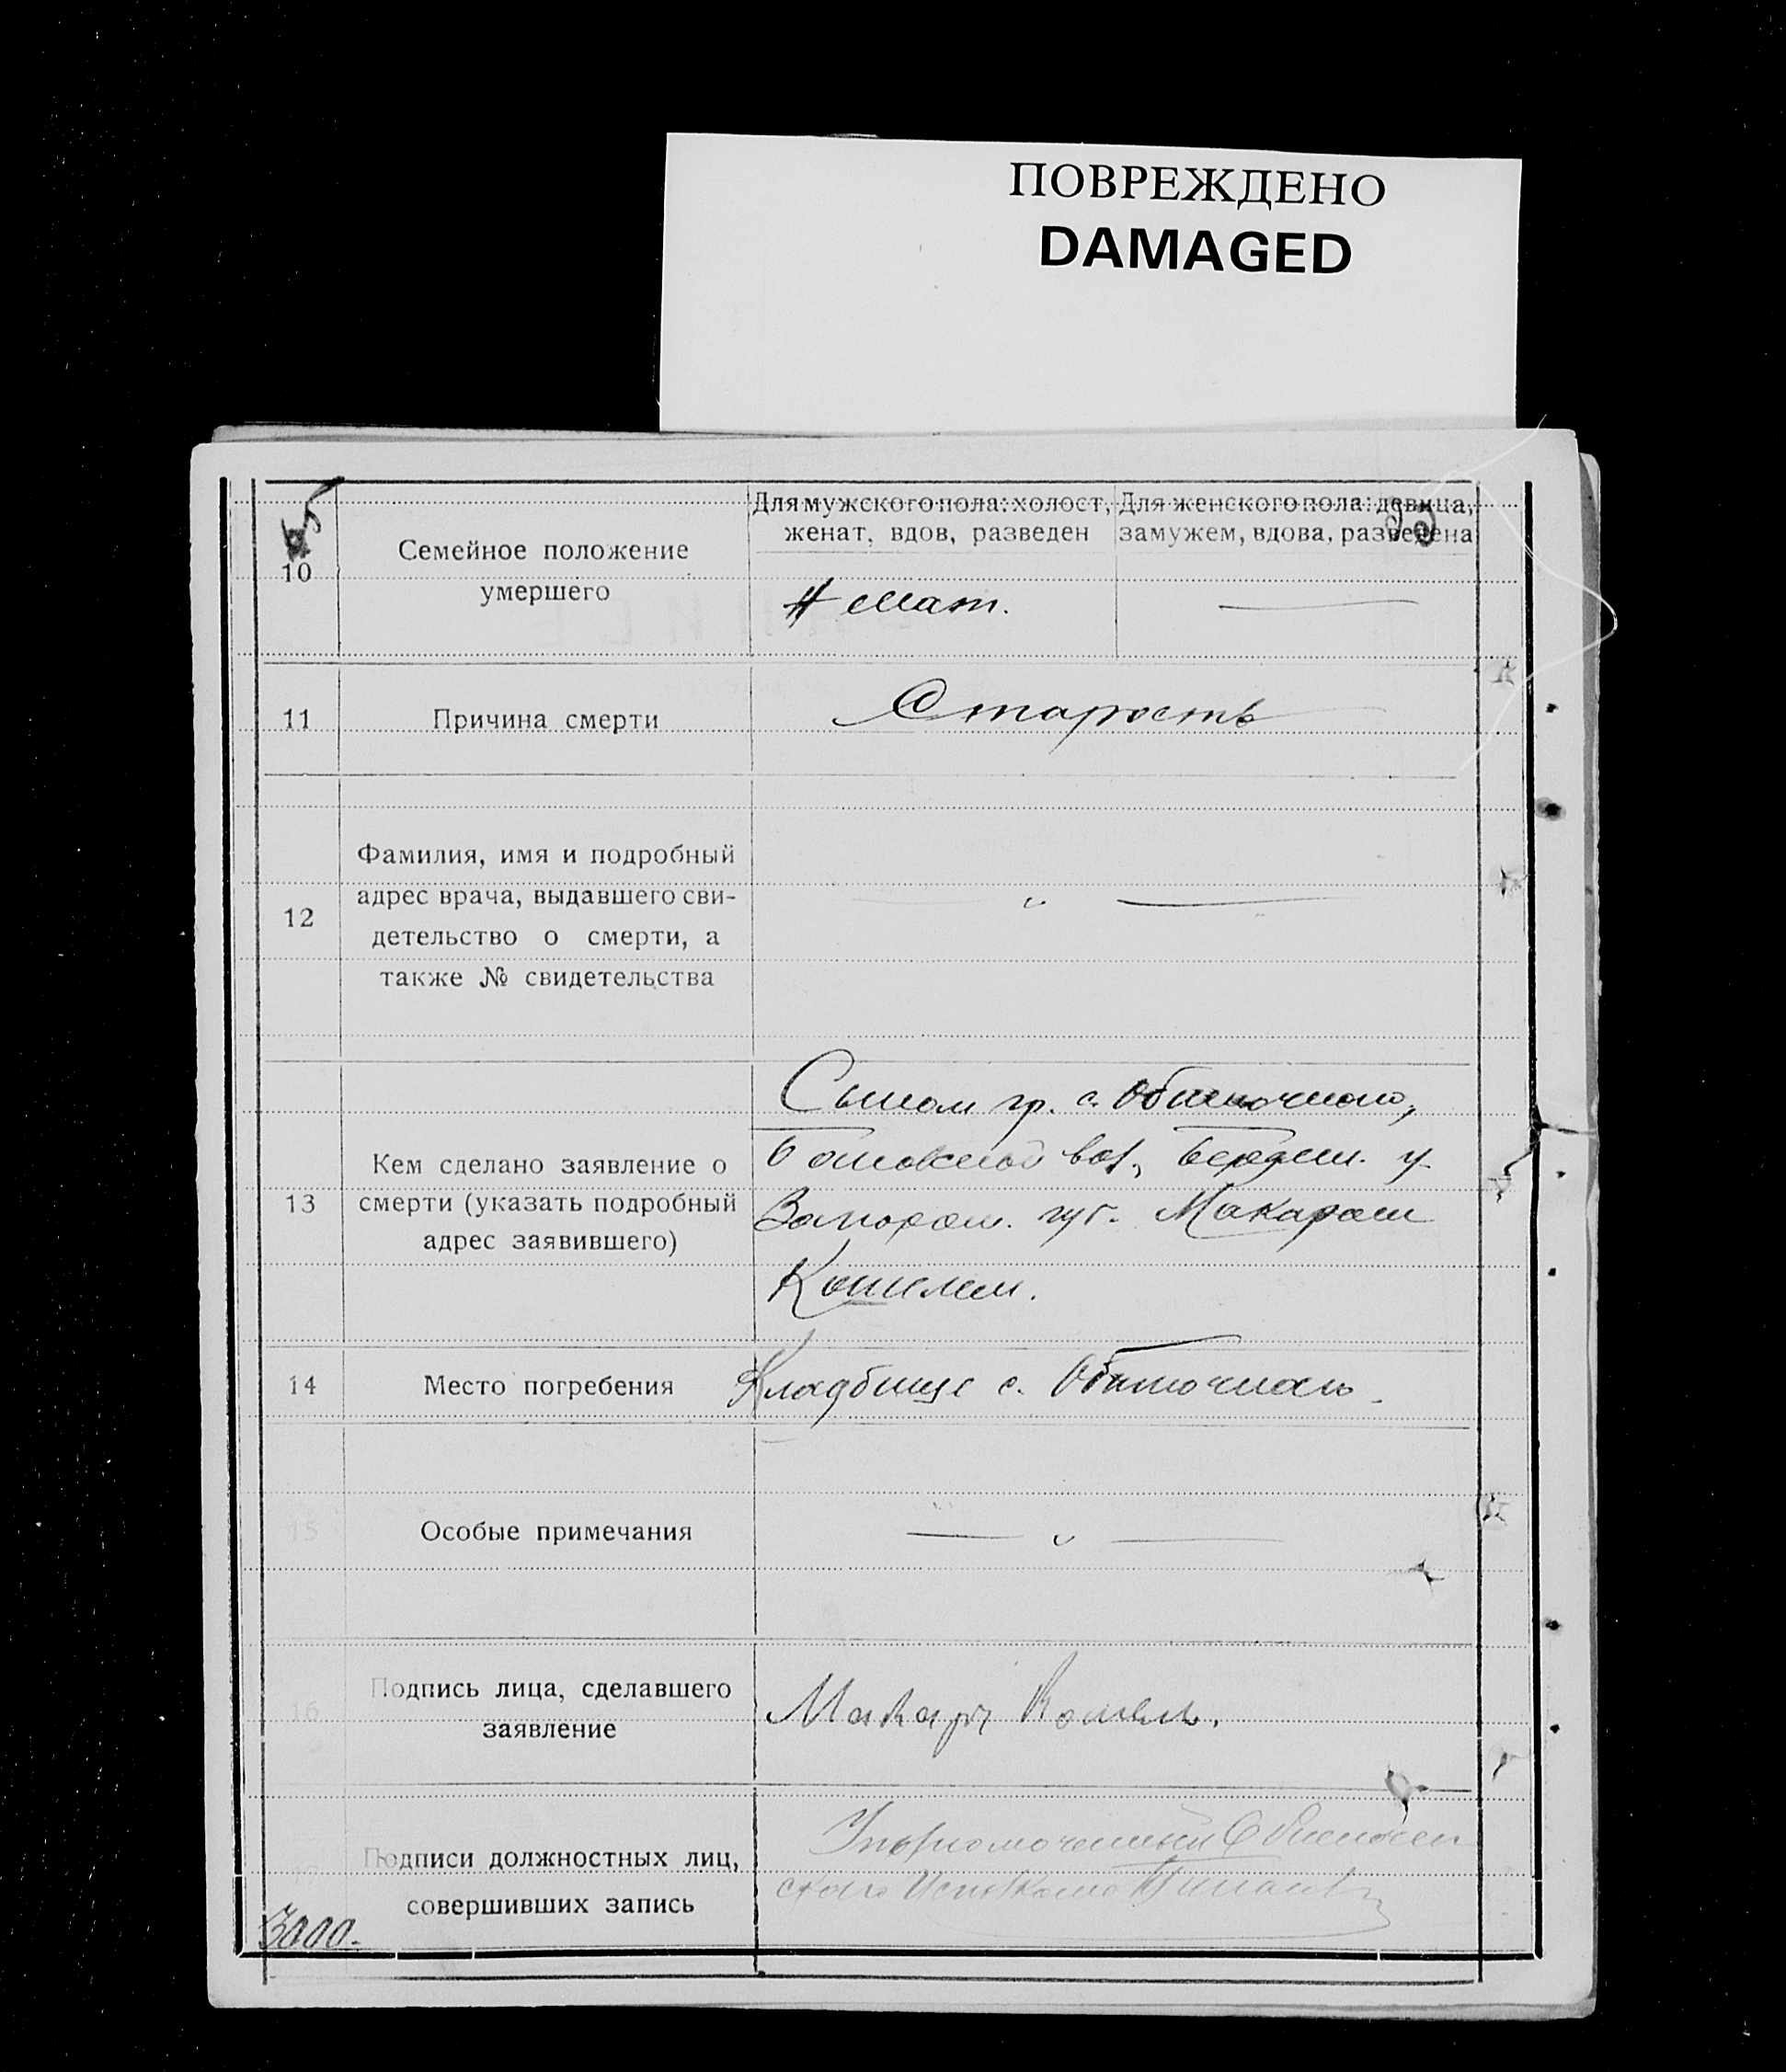 ПОВРЕЖДЕНО
DAMAGED
10
Семейное положение
умершего
Для мужского пола: холост,
женат, вдов, разведен
Для женского пола: девица,
замужем, вдова, разведена
11
Причина смерти
Старость
12
Фамилия, имя и подробный
адрес врача, выдавшего сви-
детельство о смерти, а
также № свидетельства
13
Кем сделано заявление о
смерти (указать подробный
адрес заявившего)
Сыном гр. с. Обиточного,
вол., Бердян. у.
Запорож. губ. Макаром
Кошелем.
14
Место погребения
Кладбище с. Обиточного
15
Особые примечания
16
Подпись лица, сделавшего
заявление
Макарь Кошель.
17
Подписи должностных лиц,
совершивших запись
Уполномоченный
ского Исполкома
3000.